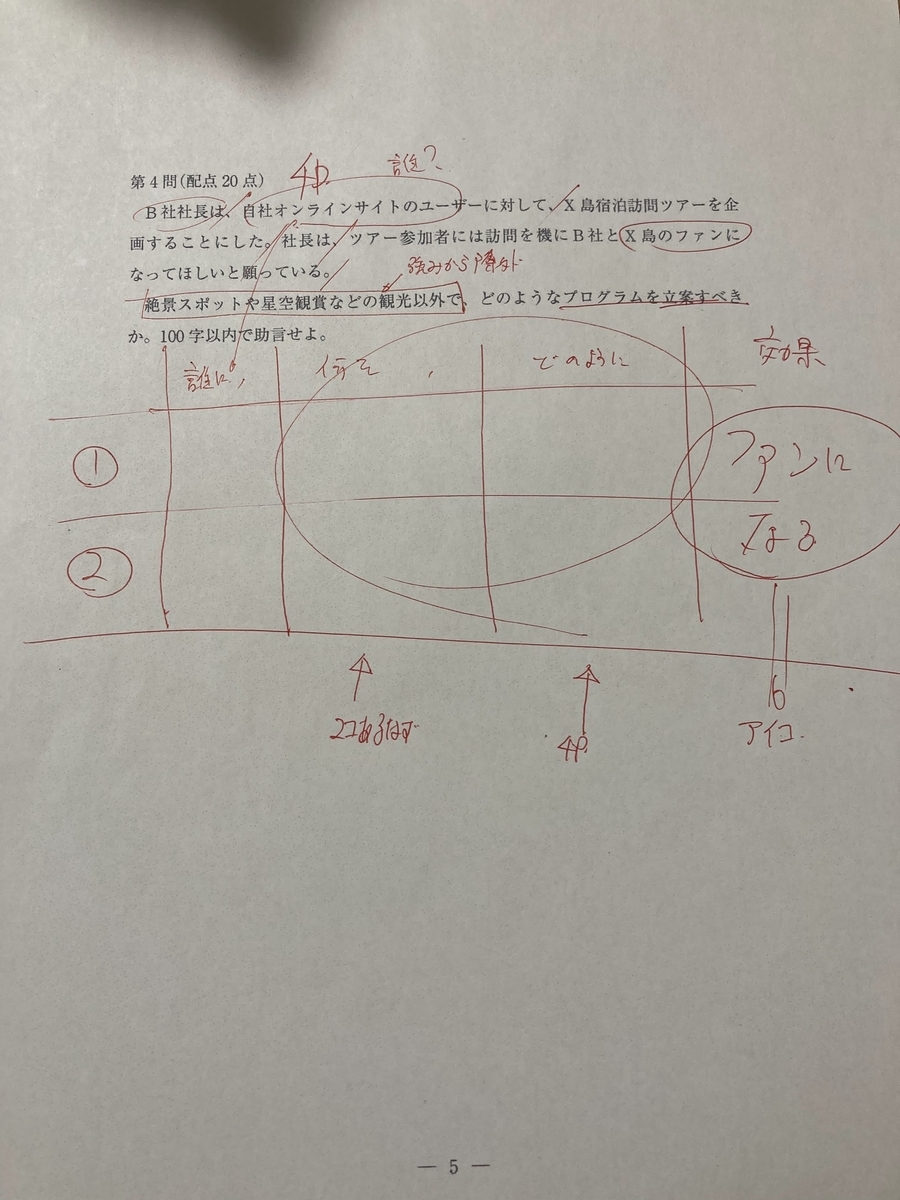 第4問(配点20点) 4P 誰?
B社社長は、自社オンラインサイトのユーザーに対して、X島宿泊訪問ツアーを企
画することにした。社長は、ツアー参加者には訪問を機にB社とX島のファンに
なってほしいと願っている。
強みから除外
絶景スポットや星空観賞などの観光以外で、どのようなプログラムを立案すべき
か。100字以内で助言せよ。
誰に, 何を , どのように 効果
① ファンに
② なる
2コあるはず 4P アイコ.
— 5 —